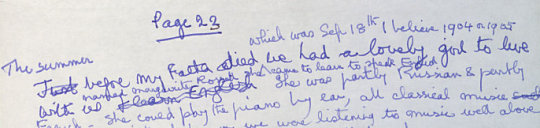 Page 23
which was Sep 18th I believe 1904 or 1905
The summer
Just before my Fatta died we had a lovely girl to live
named Marguerite she came to learn to speak English
with us She was partly Russian & partly
she could play the piano by ear, all classical music
we were listening to music well above